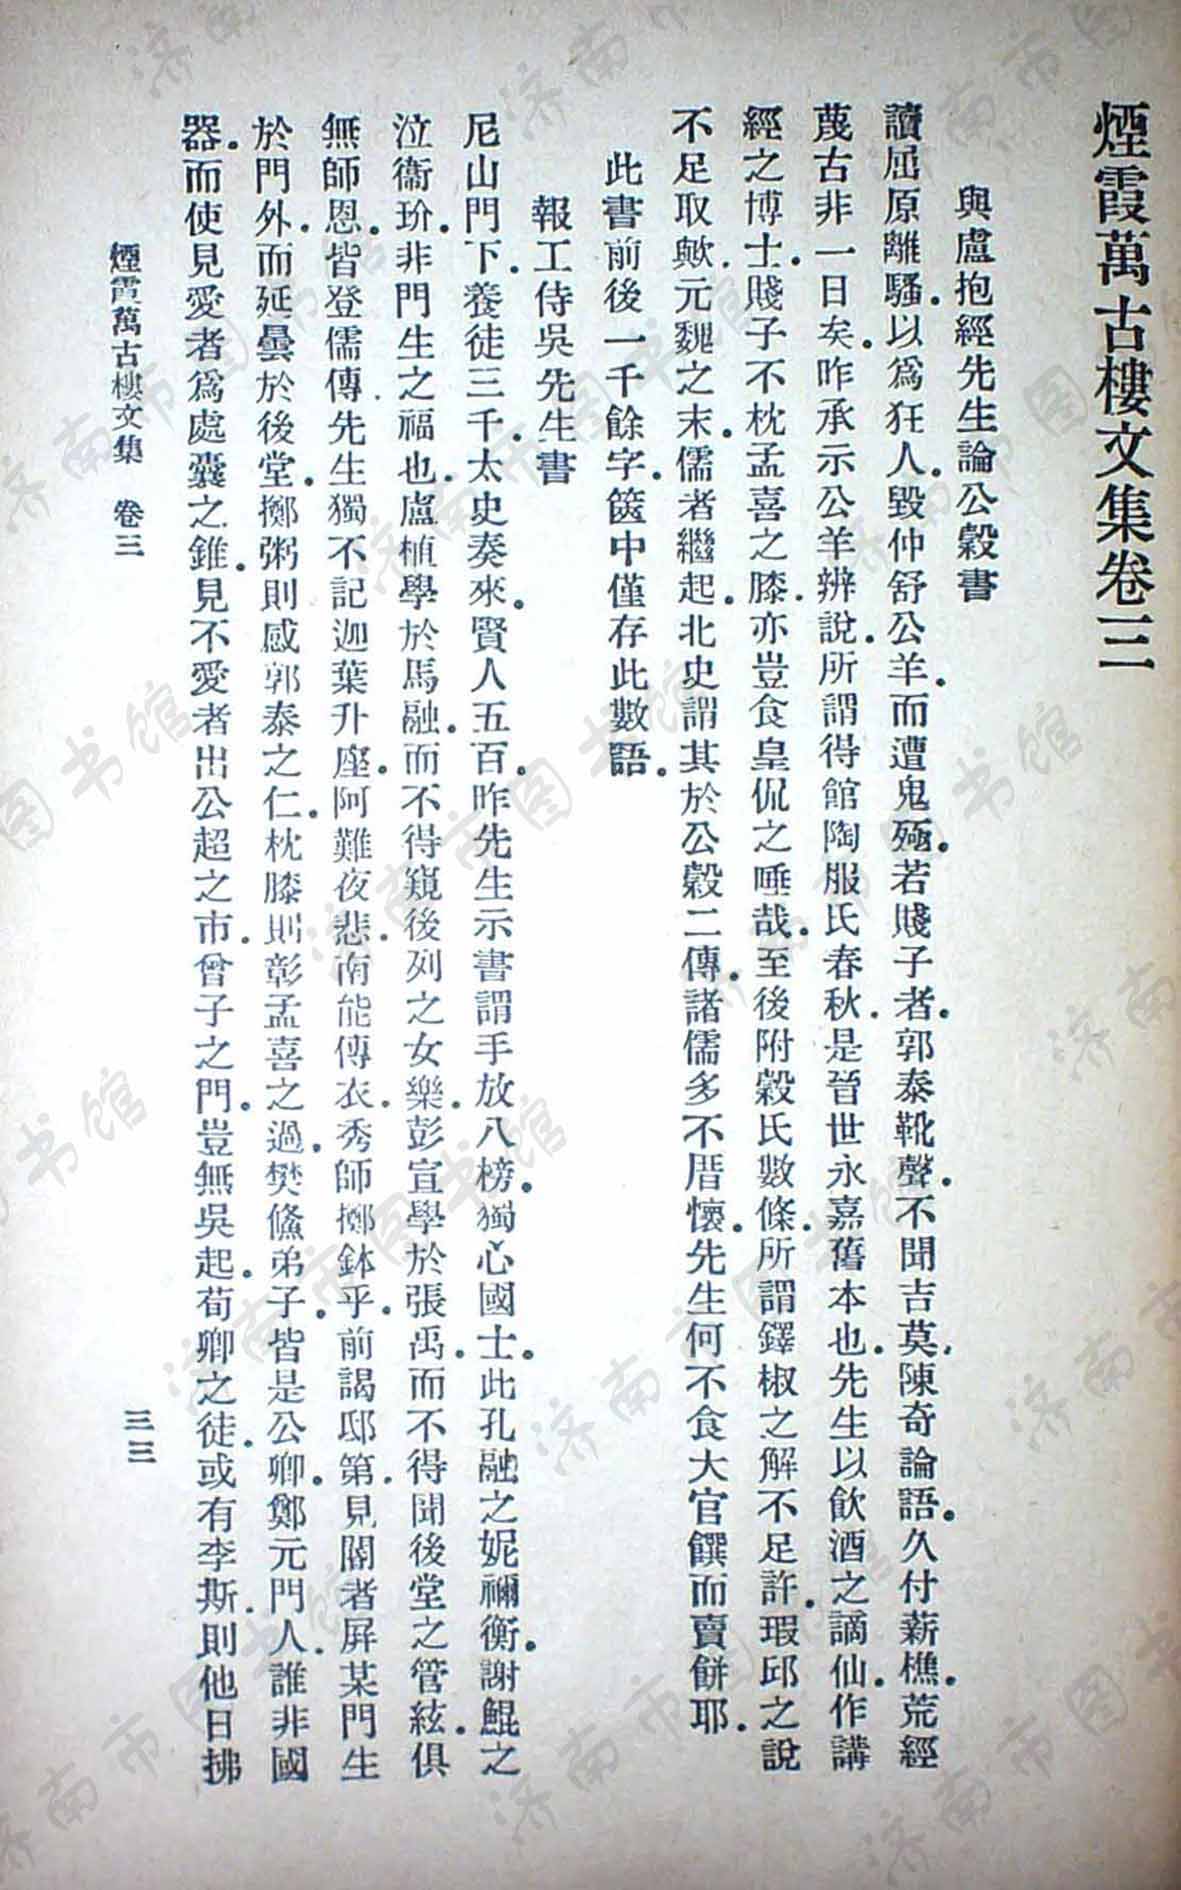 煙霞萬古樓文集卷三
與盧抱經先生論公穀書
讀屈原離騷。以爲狂人。毀仲舒公羊。而遭鬼殛。若賤子者。郭泰靴聲。不聞吉莫。陳奇論語。久付薪樵。荒經
蔑古非一日矣。昨承示公羊辨說。所謂得館陶服氏春秋。是晉世永嘉舊本也。先生以飲酒之謫仙。作講
經之博士。賤子不枕孟喜之膝。亦豈食皇侃之唾哉。至後附穀氏數條。所謂鐸椒之解不足許。瑕邱之說
不足取歟。元魏之末。儒者繼起。北史謂其於公穀二傳。諸儒多不厝懷。先生何不食大官饌而賣餅耶。
此書前後一千餘字。篋中僅存此數語。
報工侍吳先生書
尼山門下。養徒三千。太史奏來。賢人五百。昨先生示書謂手放八榜。獨心國士。此孔融之妮禰衡。謝鯤之
泣衞玠。非門生之福也。盧植學於馬融。而不得窺後列之女樂。彭宣學於張禹。而不得聞後堂之管絃。俱
無師恩。皆登儒傳。先生獨不記迦葉升座。阿難夜悲。南能傳衣。秀師擲鉢乎。前謁邸第。見閽者屏某門生
於門外。而延曇於後堂。擲粥則感郭泰之仁。枕膝則彰孟喜之過。樊鯈弟子。皆是公卿。鄭元門人。誰非國
器。而使見愛者爲處囊之錐。見不愛者出公超之市。曾子之門。豈無吳起。荀卿之徒。或有李斯。則他日拂
煙霞萬古樓文集 卷三
三三